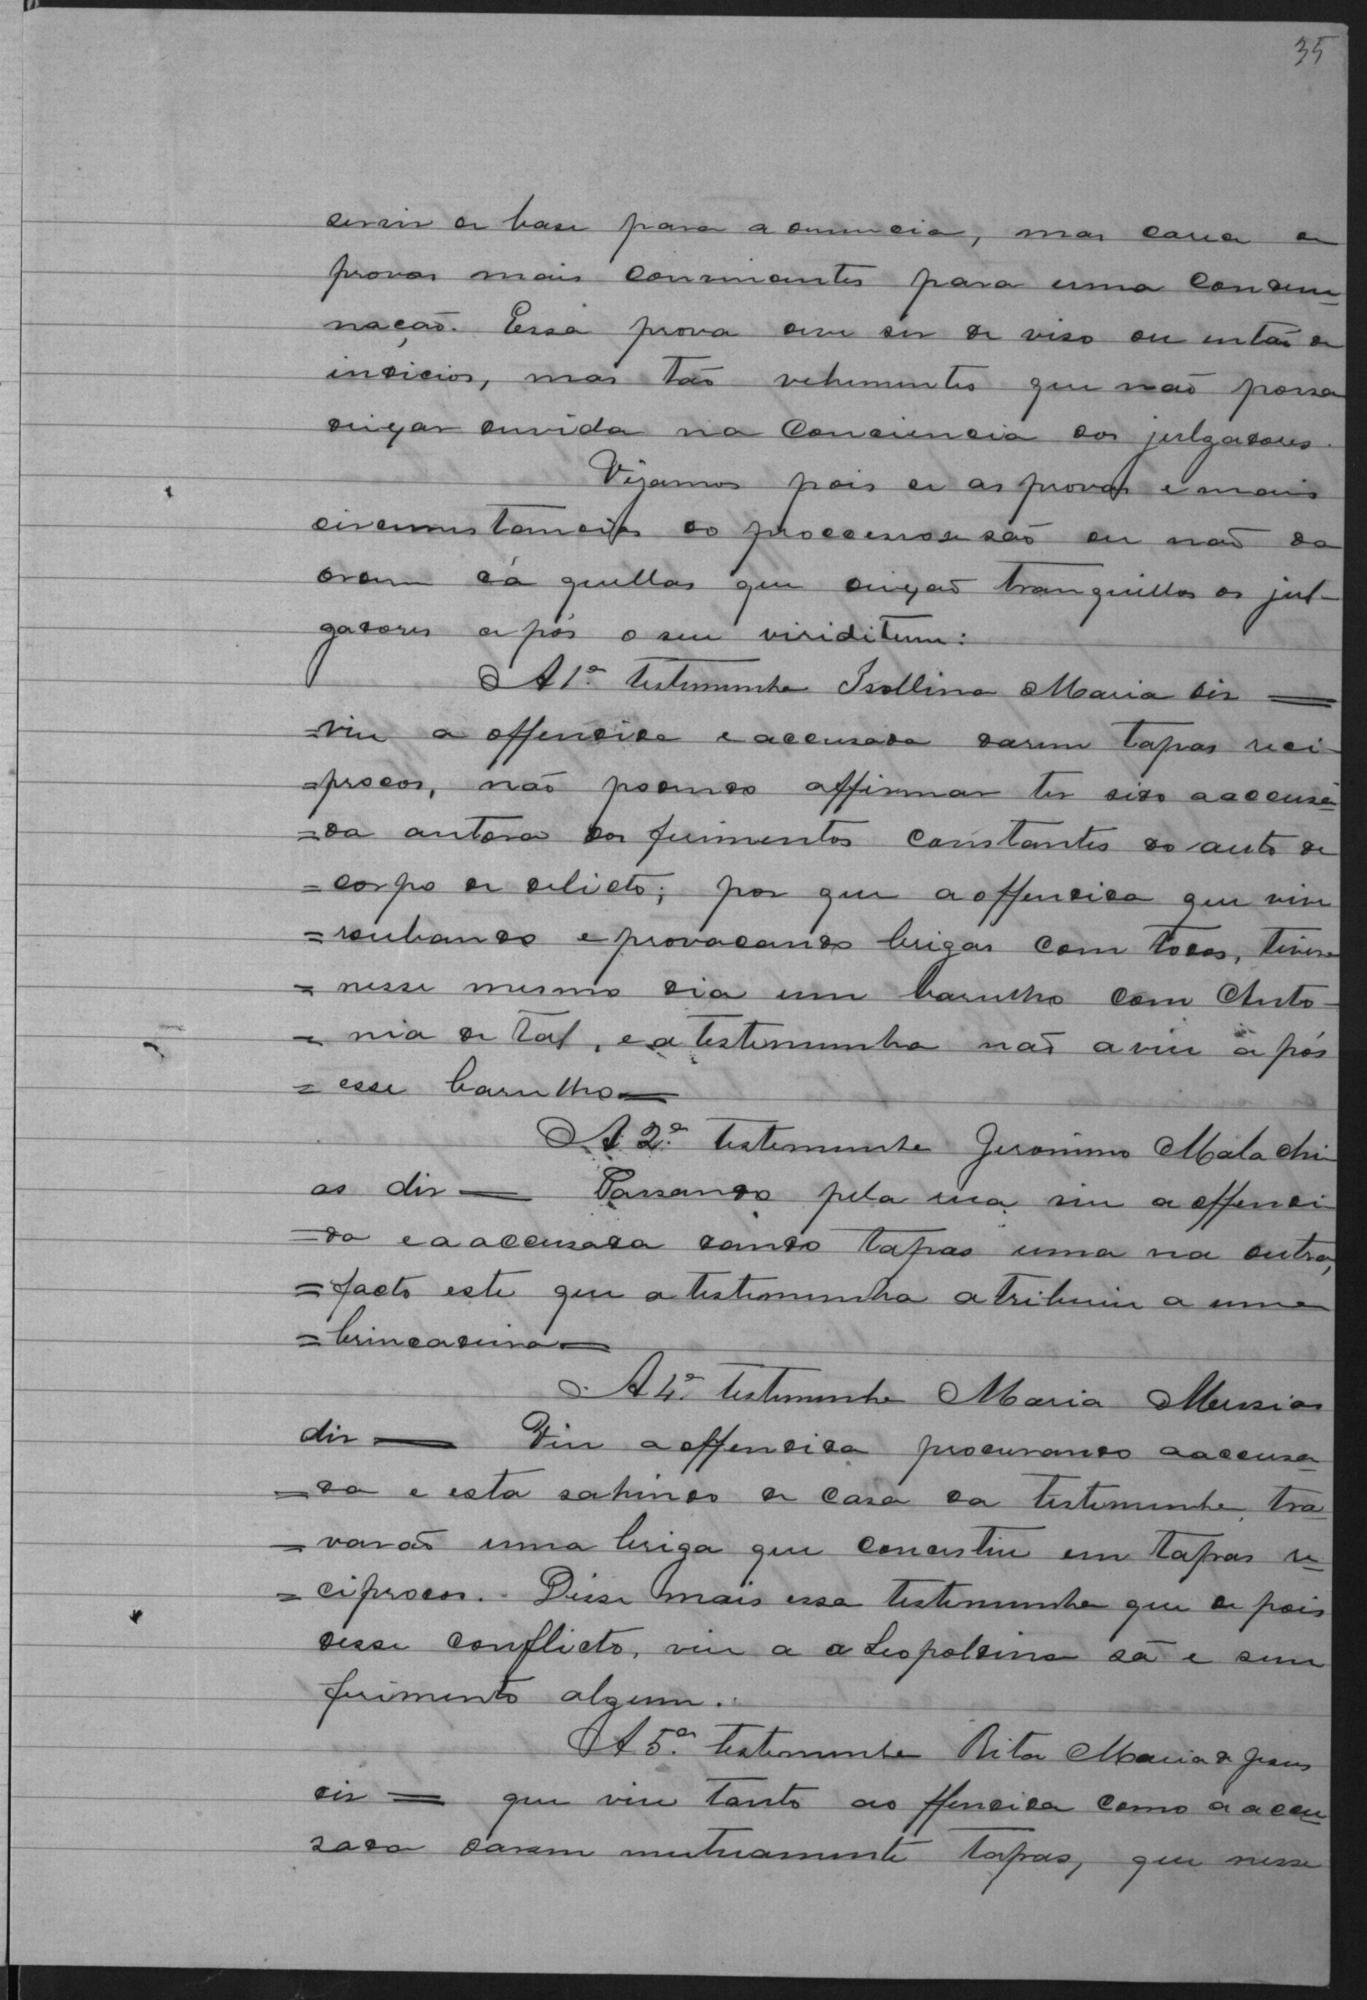 35
servir de base para a denuncia, mas carece de
provas mais convincentes para uma condem=
nação. Essa prova deve ser de viso ou então de
indicios, mas tão vehementes que não possa
deixar duvida na Conciencia dos julgadores.
Vejamos pois se as provas e mais
circumstancias do processo são ou não da
ordem d'aquellas que deixão tranquillos os jul-
gadores após o seu viriditum:
A 1ª testemunha Isollina Maria diz =
=viu a offendida e accusada darem tapas reci-
=procos, não podendo affirmar ter sido a accusa=
=da autora dos ferimentos constantes do auto de
=corpo de delicto; por que a offendida que vive
=roubando e provocando brigas com todos, tivera
=nesse mesmo dia um barulho com Anto-
=nia de tal, e a testemunha não a viu após
=esse barulho=
A 2ª testemunha Jeronimo Malachi-
as diz — Passando pela rua viu a offendi-
=da e a accusada dando tapas uma na outra,
=facto este que a testemunha atribuiu a uma
=brincadeira=
A 4ª testemunha Maria Messias
diz — Viu a offendida procurando a accusa=
=da e esta sahindo de casa da testemunha, tra=
=varão uma briga que concistiu em tapas re=
=ciprocos. Disse mais essa testemunha que depois
desse conflicto, viu a a Leopoldina sã e sem
ferimento algum.
A 5ª testemunha Rita Maria de Jesus
diz = que viu tanto a offendida como a accu=
sada darem mutuamente tapas, que nesse